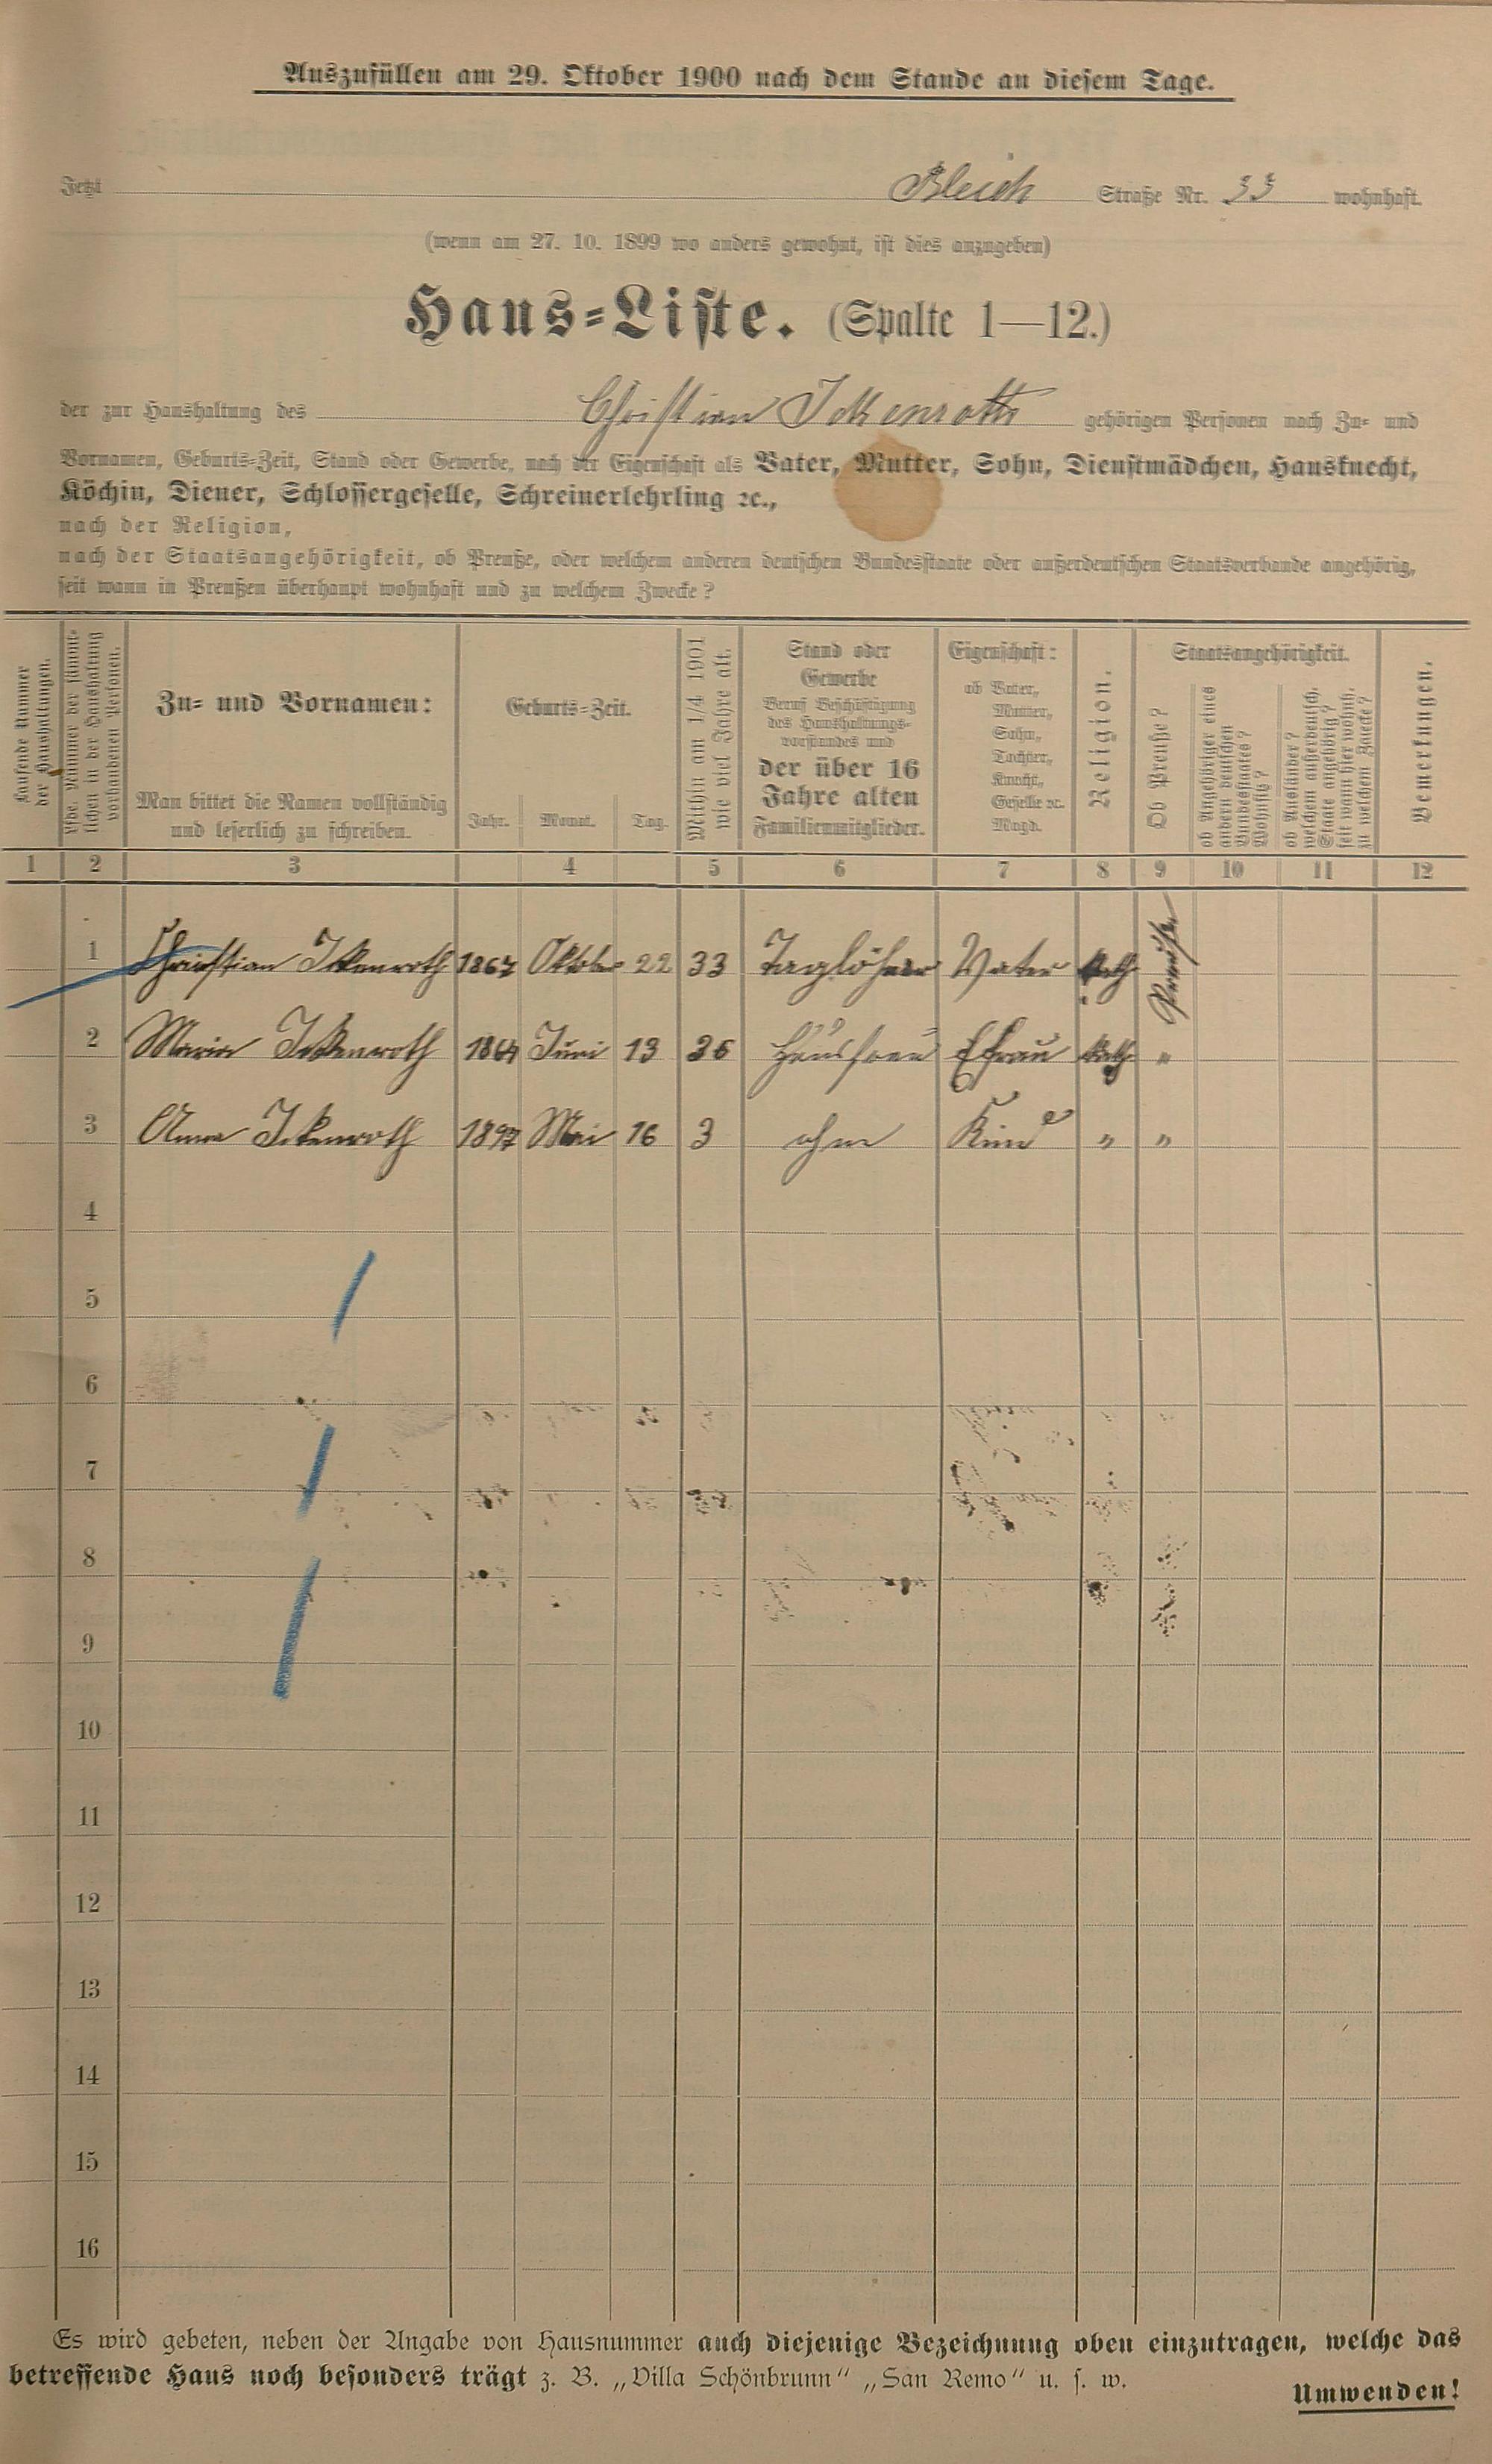 Auszufüllen am 29. Oktober 1900 nach dem Stande an diesem Tage.
Jetzt Bleich Straße Nr. 33 wohnhaft.
(wenn am 27. 10. 1899 wo anders gewohnt, ist dies anzugeben)
Haus-Liste. (Spalte 1—12.)
der zur Haushaltung des Christian Ickenroth gehörigen Personen nach Zu- und
Vornamen, Geburts-Zeit, Stand oder Gewerbe, nach der Eigenschaft als Vater, Mutter, Sohn, Dienstmädchen, Hausknecht,
Köchin, Diener, Schlossergeselle, Schreinerlehrling ꝛc.,
nach der Religion,
nach der Staatsangehörigkeit, ob Preuße, oder welchem anderen deutschen Bundesstaate oder außerdeutschen Staatsverbande angehörig,
seit wann in Preußen überhaupt wohnhaft und zu welchem Zwecke?
Laufende Nummer
der Haushaltungen.
Lfde. Nummer der sämmt-
lichen in der Haushaltung
vorhandenen Personen.
Zu- und Vornamen:
Man bittet die Namen vollständig
und leserlich zu schreiben.
Geburts-Zeit.
Jahr. Monat. Tag.
Mithin am 1/4 1901
wie viel Jahre alt.
Stand oder
Gewerbe
Beruf Beschäftigung
des Haushaltungs-
vorstandes und
der über 16
Jahre alten
Familienmitglieder.
Eigenschaft:
ob Vater,
Mutter,
Sohn,
Tochter,
Knecht,
Geselle ꝛc.
Magd.
Religion.
Staatsangehörigkeit.
Ob Preuße?
ob Angehöriger eines
anderen deutschen
Bundesstaates?
Wohnsitz?
ob Ausländer?
welchem außerdeutsch.
Staate angehörig?
seit wann hier wohnh.
zu welchem Zwecke?
Bemerkungen.
1 2 3 4 5 6 7 8 9 10 11 12
1 Christian Ickenroth 1867 Oktober 22 33 Taglöhner Vater Kath Preuße
2 Maria Ickenroth 1864 Juni 13 36 Hausfrau Efrau Kath "
3 Anna Ickenroth 1897 Mai 16 3 ohne Kind " "
4
5
6
7
8
9
10
11
12
13
14
15
16
Es wird gebeten, neben der Angabe von Hausnummer auch diejenige Bezeichnung oben einzutragen, welche das
betreffende Haus noch besonders trägt z. B. „Villa Schönbrunn" „San Remo" u. s. w.
Umwenden!